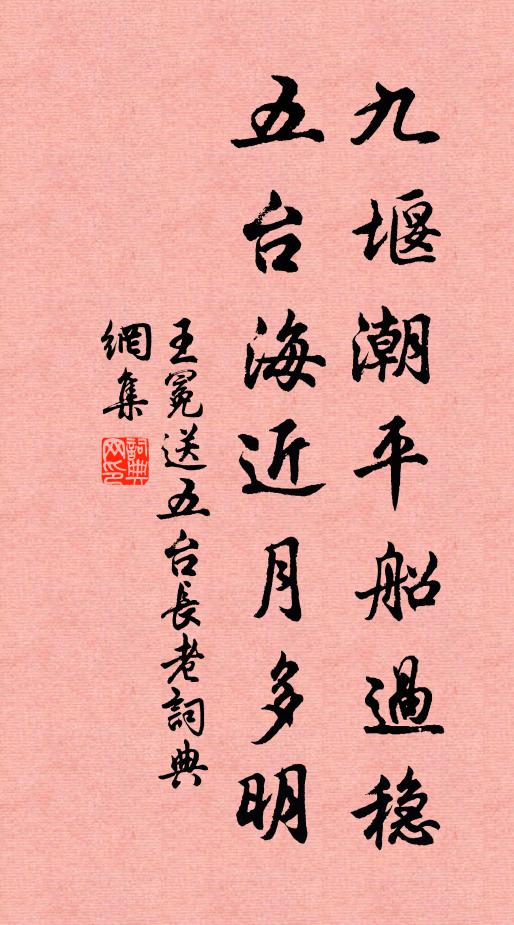 九堰潮平船過穩
五台海近月多明
王冕送五台長老詞典
網集
詞典
网印